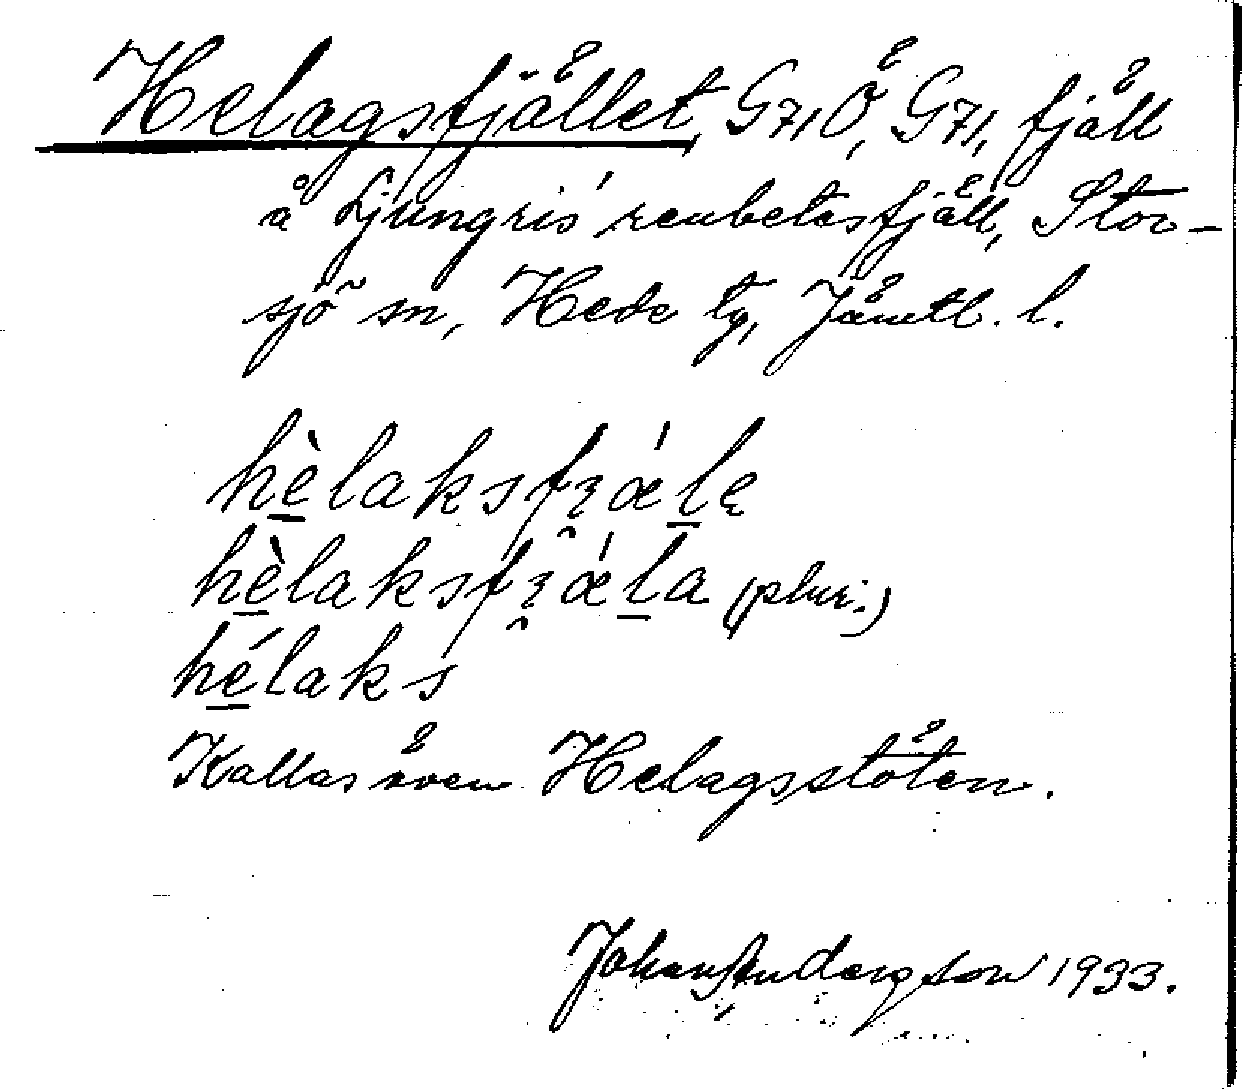 Helagsfjället, G71Ö, G71, fjäll
å Ljungris' renbetesfjäll, Stor-
sjö sn, Hede tg, Jämtl. l.
hèlaksfʒǽlę
hèlaksfʒǽla (plur.)
hélaks
Kallas även Helagsstöten.
Johan Anderson 1933.